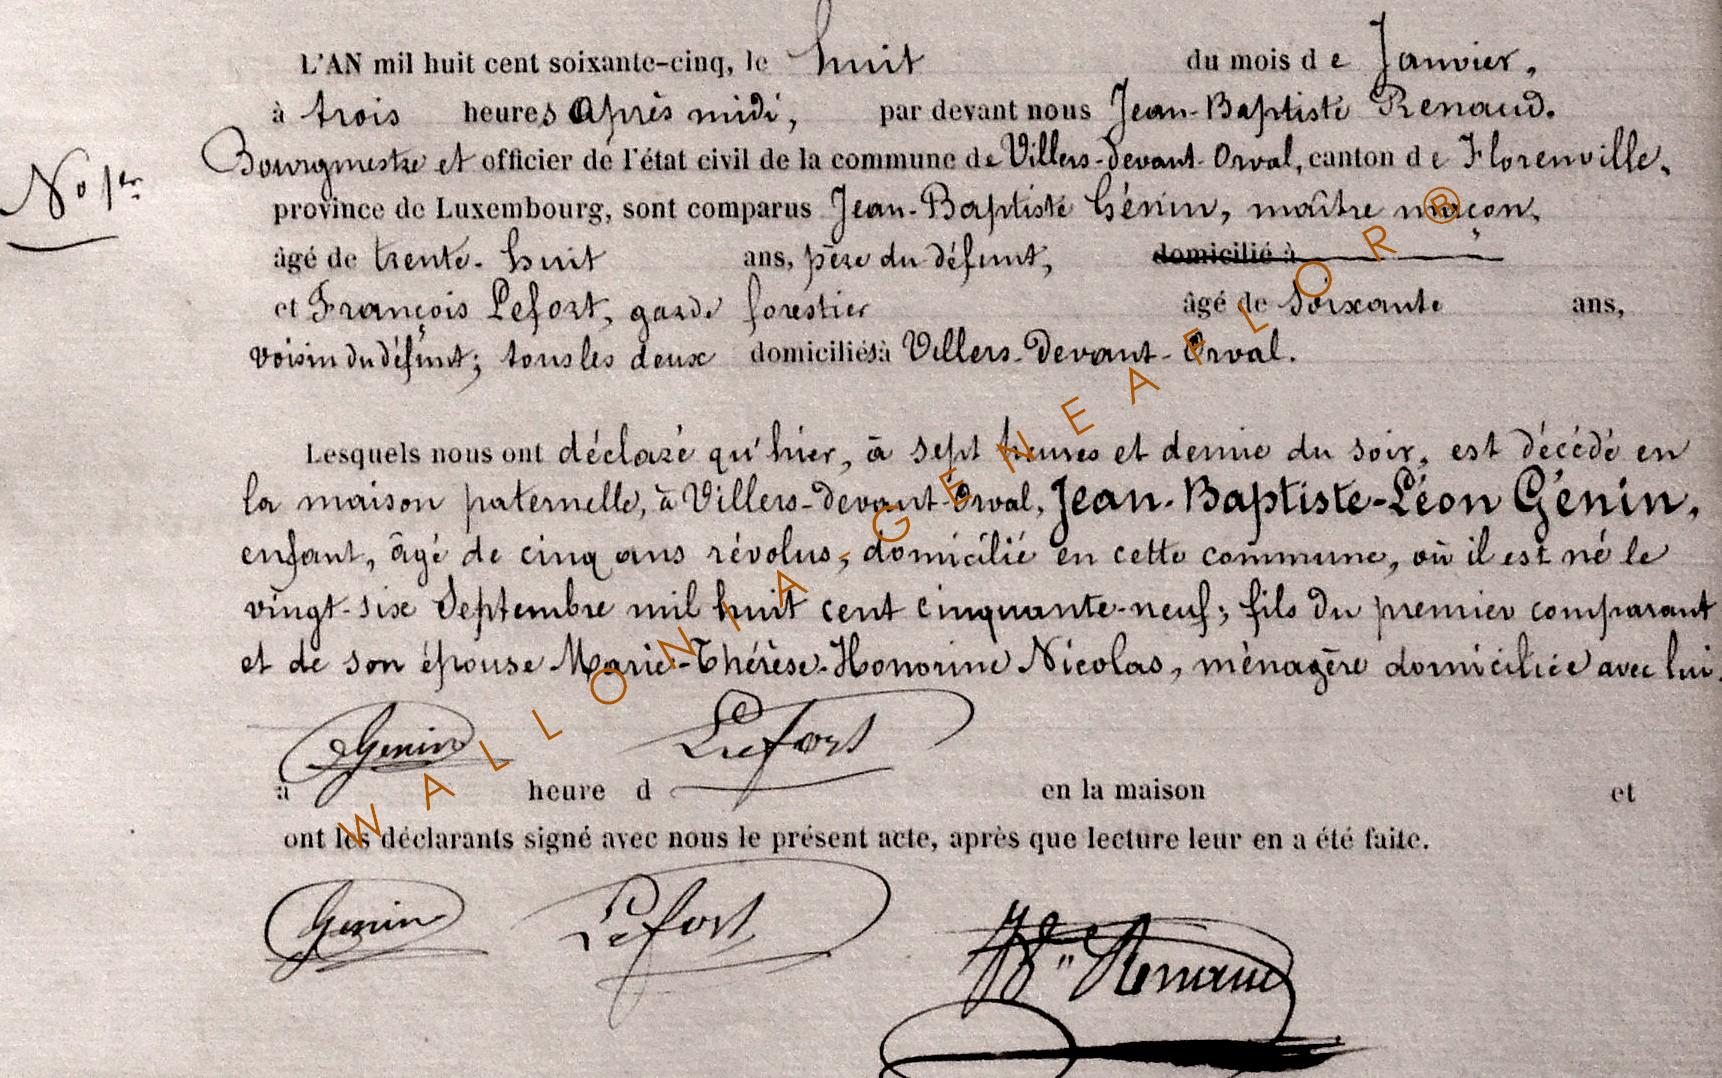 L'AN mil huit cent soixante-cinq, le huit du mois de Janvier,
à trois heures après midi, par devant nous Jean-Baptiste Renaud.
N° 1er
Bourgmestre et officier de l'état civil de la commune de Villers-devant-Orval, canton de Florenville,
province de Luxembourg, sont comparus Jean-Baptiste Génin, maître maçon,
âgé de trente-huit ans, père du défunt, domicilié à
et François Lefort, garde forestier âgé de soixante ans,
voisin du défunt; tous les deux domiciliés à Villers-devant-Orval.
Lesquels nous ont déclaré qu'hier, à sept heures et demie du soir, est décédé en
la maison paternelle, à Villers-devant-Orval, Jean-Baptiste-Léon Génin,
enfant, âgé de cinq ans révolus, domicilié en cette commune, où il est né le
vingt-six Septembre mil huit cent cinquante-neuf; fils du premier comparant
et de son épouse Marie-Thérèse-Honorine Nicolas, ménagère domiciliée avec lui.
Genin Lefort
à heure d en la maison et
ont les déclarants signé avec nous le présent acte, après que lecture leur en a été faite.
Genin Lefort JBte Renaud
WALLONIA-GENEAFLOR®